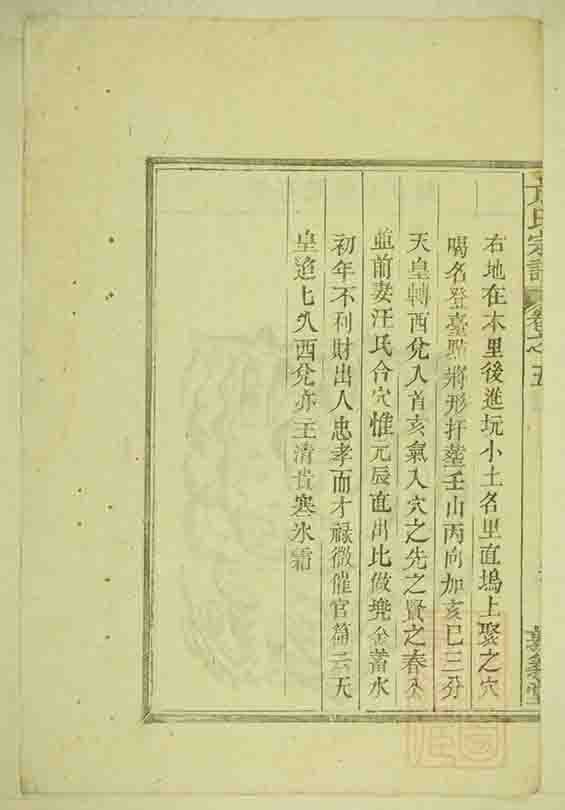 右地在木里後進玩小土名里直塢上聚之穴
喝名登臺點將形扞塟壬山丙向加亥巳三分
天皇轉酉兌入首亥氣入穴之先之賢之春入
並前妻汪氏合穴惟元辰直出比做堯金蓄水
初年不利財出人忠孝而才祿微催官篇云天
皇迢七入酉兌亦主清貴寒氷霜
氏宗譜
卷之五